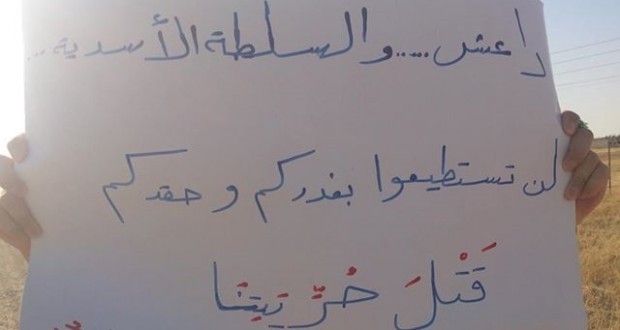 داعش.....والسلطة الأسدية...
لن تستطيعوا بغدركم وحقدكم
قَتْلَ حُرِّيَتِنَا